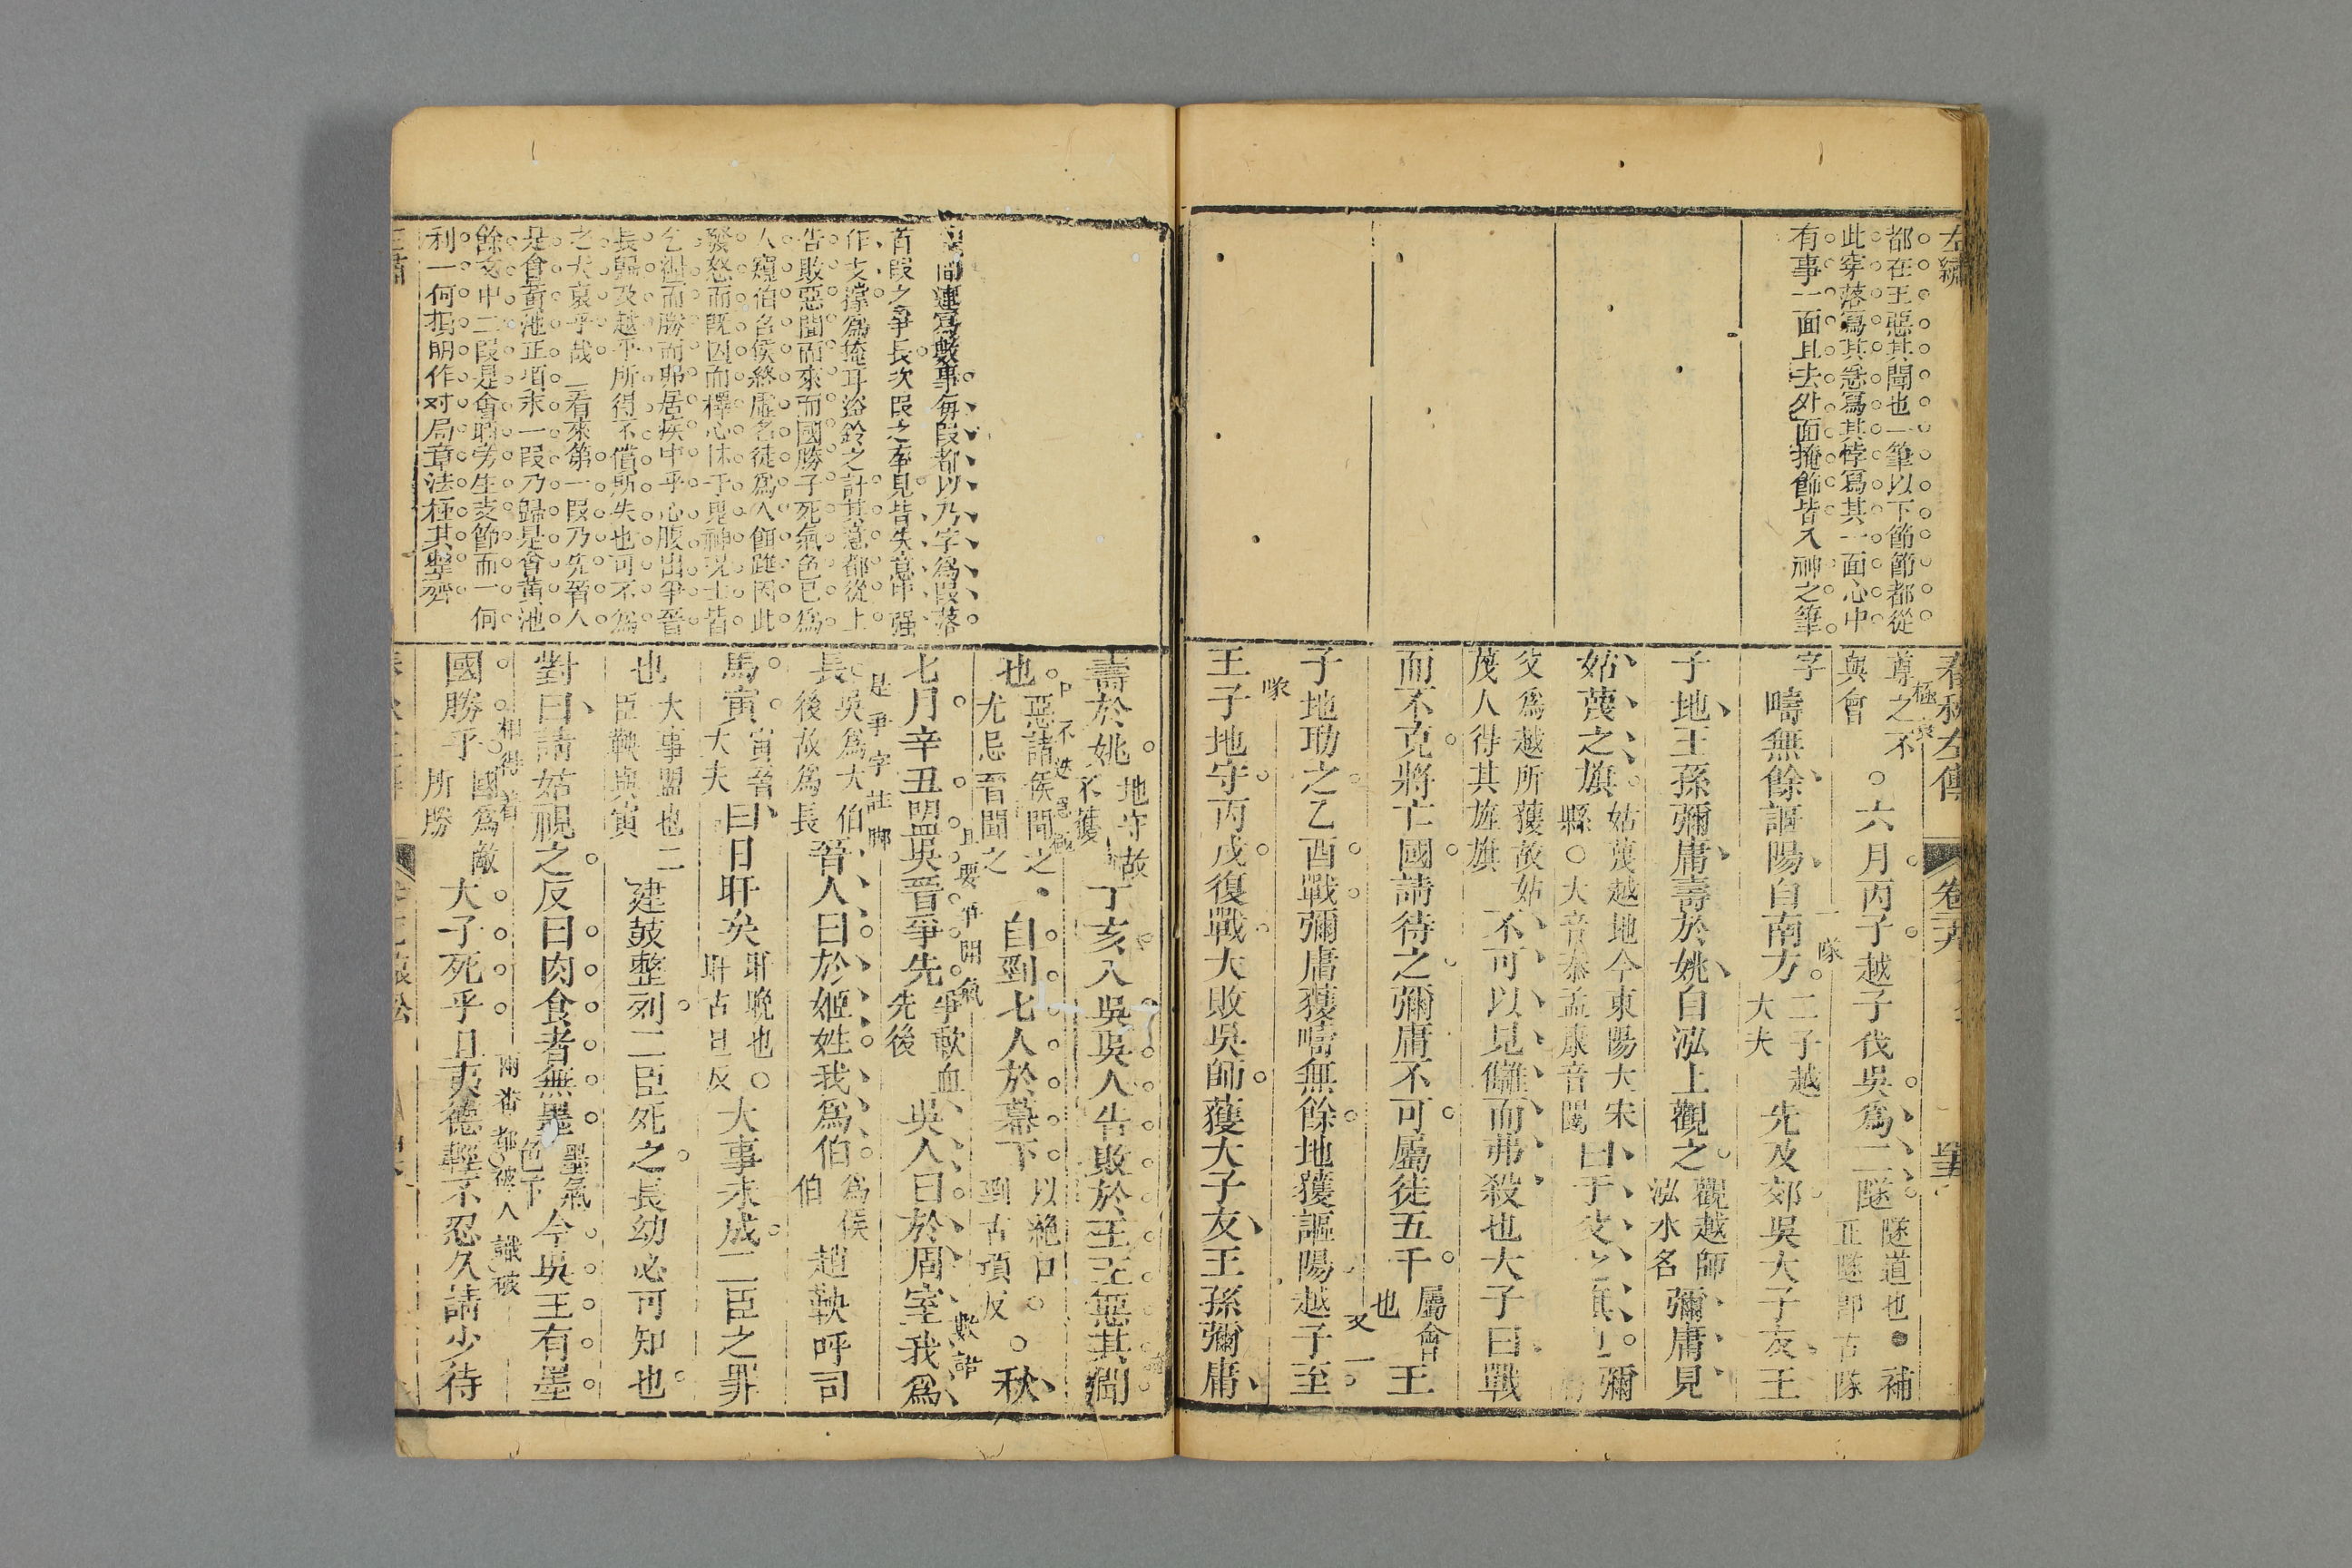 左繡
都在王惡其聞也一筆以下節節都從
此穿落寫其惡寫其悖寫其一面心中
有事一面且去外面掩飾皆入神之筆
春秋左傳 卷二十九
極哀
尊之不
與會
○六月丙子越子伐吳為二隧
隧道也●補
正隧即古隊
字
疇無餘謳陽自南方
一隊
二子越
大夫
先及郊吳大子友王
子地王孫彌庸壽於姚自泓上觀之
觀越師
泓水名
彌庸見
姑蔑之旗
姑蔑越地今東陽大末
縣○大音泰孟康音闥
曰吾父之旗也
彌
父為越所獲故姑
蔑人得其旌旗
不可以見讎而弗殺也大子曰戰
而不克將亡國請待之彌庸不可屬徒五千
屬會
也
王
子地助之乙酉戰彌庸獲疇無餘地獲謳陽越子至
又一
隊
王子地守丙戌復戰大敗吳師獲大子友王孫彌庸
連寫數事每段都以乃字為段落
首段之爭長次段之奉見皆失意中强
作支撐為掩耳盜鈴之計其意都從上
告敗惡聞而來而國勝子死氣色已為
人窺伯召侯終虛名徒為人餌跪因此
發怒而既囚而釋心怵于鬼神況士皆
長歸及越平所得不償所失也可不為
之大哀乎哉 一看來第一段乃先晉人
是會黃池正項末一段乃歸是會黃池
餘文中二段是會時旁生支節而一何
利一何損明作對局章法極其整齊
壽於姚
地守故
不獲
丁亥入吳吳人告敗於王王惡其聞
也
惡諸侯聞之
尤忌晉聞之
自剄七人於幕下
以絕口○
剄古頂反
○秋
七月辛丑盟吳晉爭先
且要爭閒氣
爭歃血
先後
吳人曰於周室我為
數語
是爭字註腳
長
吳為大伯
後故為長
晉人曰於姬姓我為伯
為侯
伯
趙鞅呼司
馬寅
寅晉
大夫
曰日旰矣
旰晚也○
旰古旦反
大事未成二臣之罪
也
大事盟也二
臣鞅與寅
建鼓整列二臣死之長幼必可知也
對曰請姑視之反曰肉食者無墨
墨氣
色下
今吳王有墨
相得着
兩番都被人識破
國勝乎
國為敵
所勝
大子死乎且夷德輕不忍久請少待